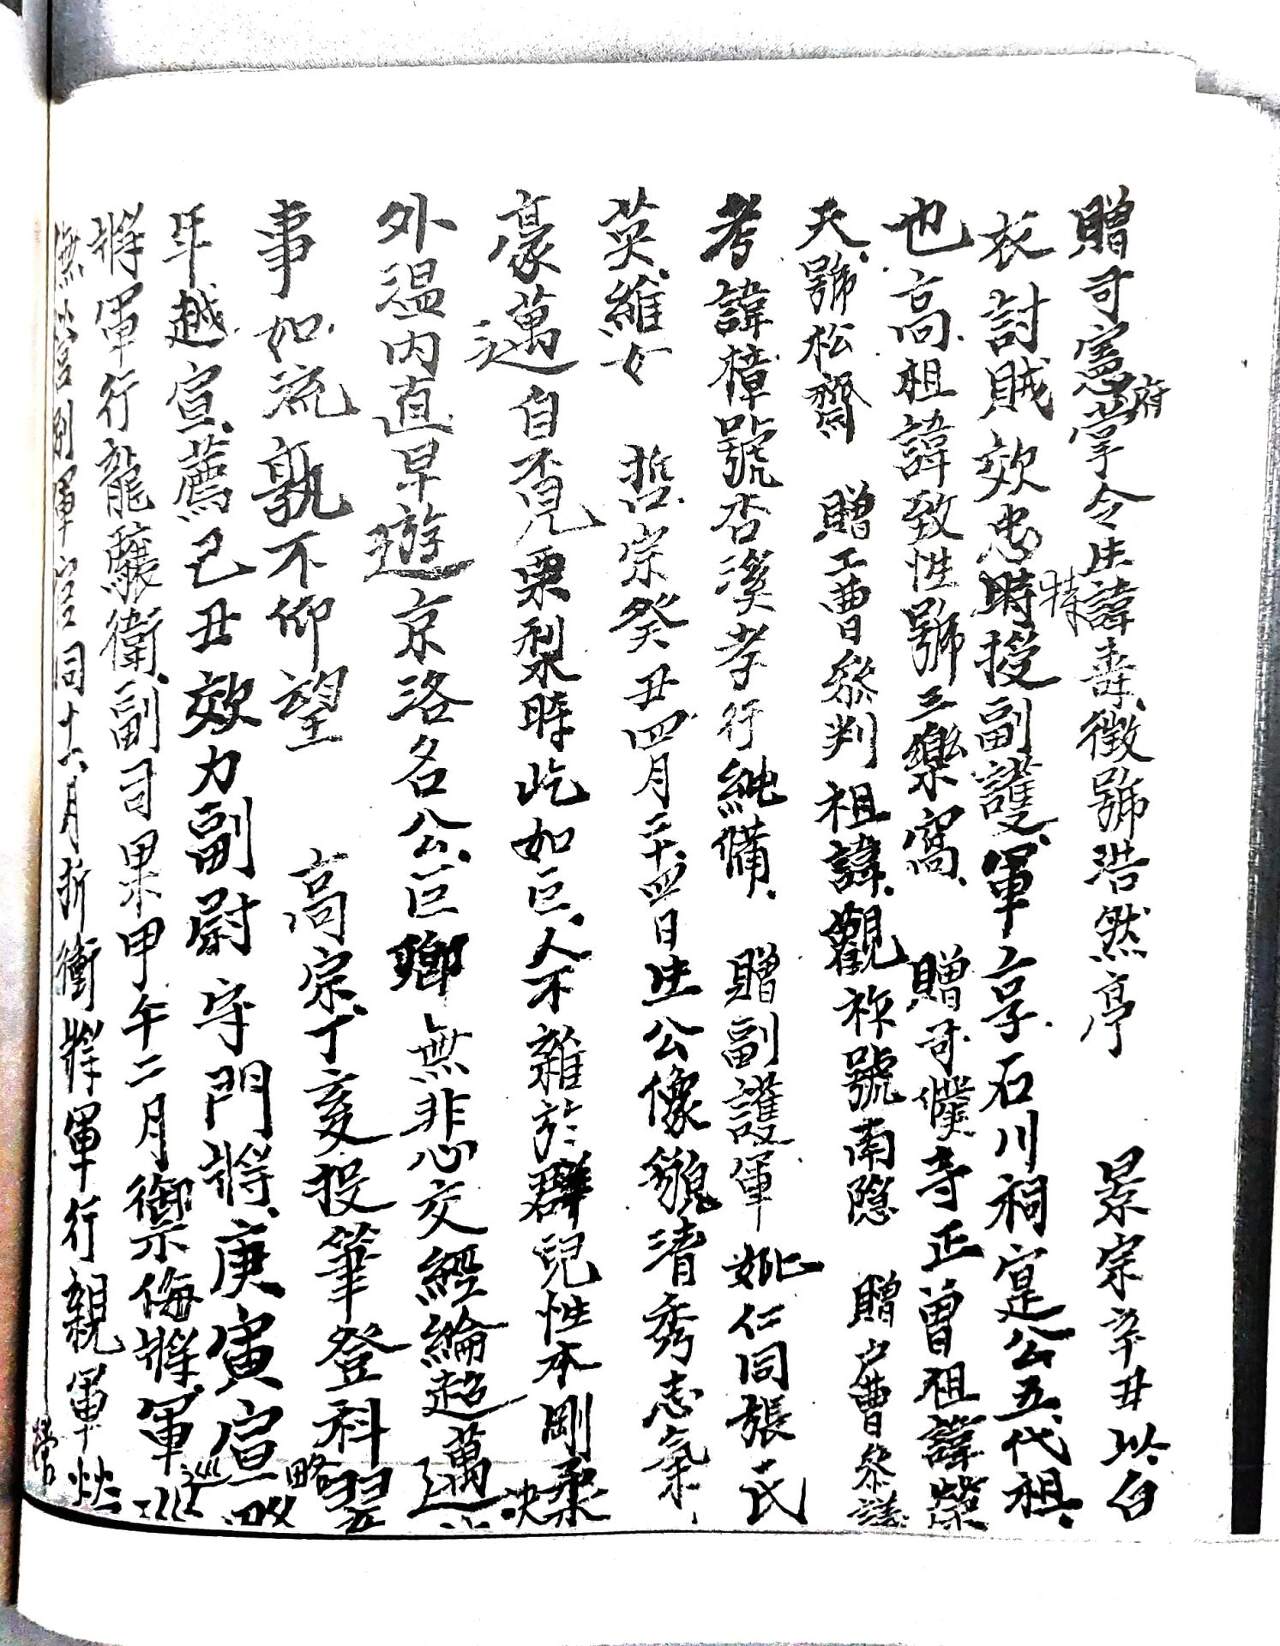 贈司憲府掌令生諱壽徵號浩然亭 景宗辛丑以白
衣討賊效忠時特授副護軍享石川祠寔公五代祖
也高祖諱致性號三樂窩 贈司僕寺正曾祖諱榮
天號松齋 贈工曹參判祖諱觀祚號南隱 贈戶曹參議
考諱樟號杏溪孝行純備 贈副護軍 妣仁同張氏
英維女 哲宗癸丑四月二十四日生公像貌清秀志氣
豪邁自不見栗梨時屹如巨人不雜於群兒性本剛柔
外溫内直早遊京洛名公巨卿無非心交經綸超邁決
事如流孰不仰望 高宗丁亥投筆登科翌
年越宣薦己丑效力副尉守門將庚寅宣略
將軍行龍驤衛副司果甲午二月禦侮將軍
宮別軍官同十六月折衝將軍行親軍營